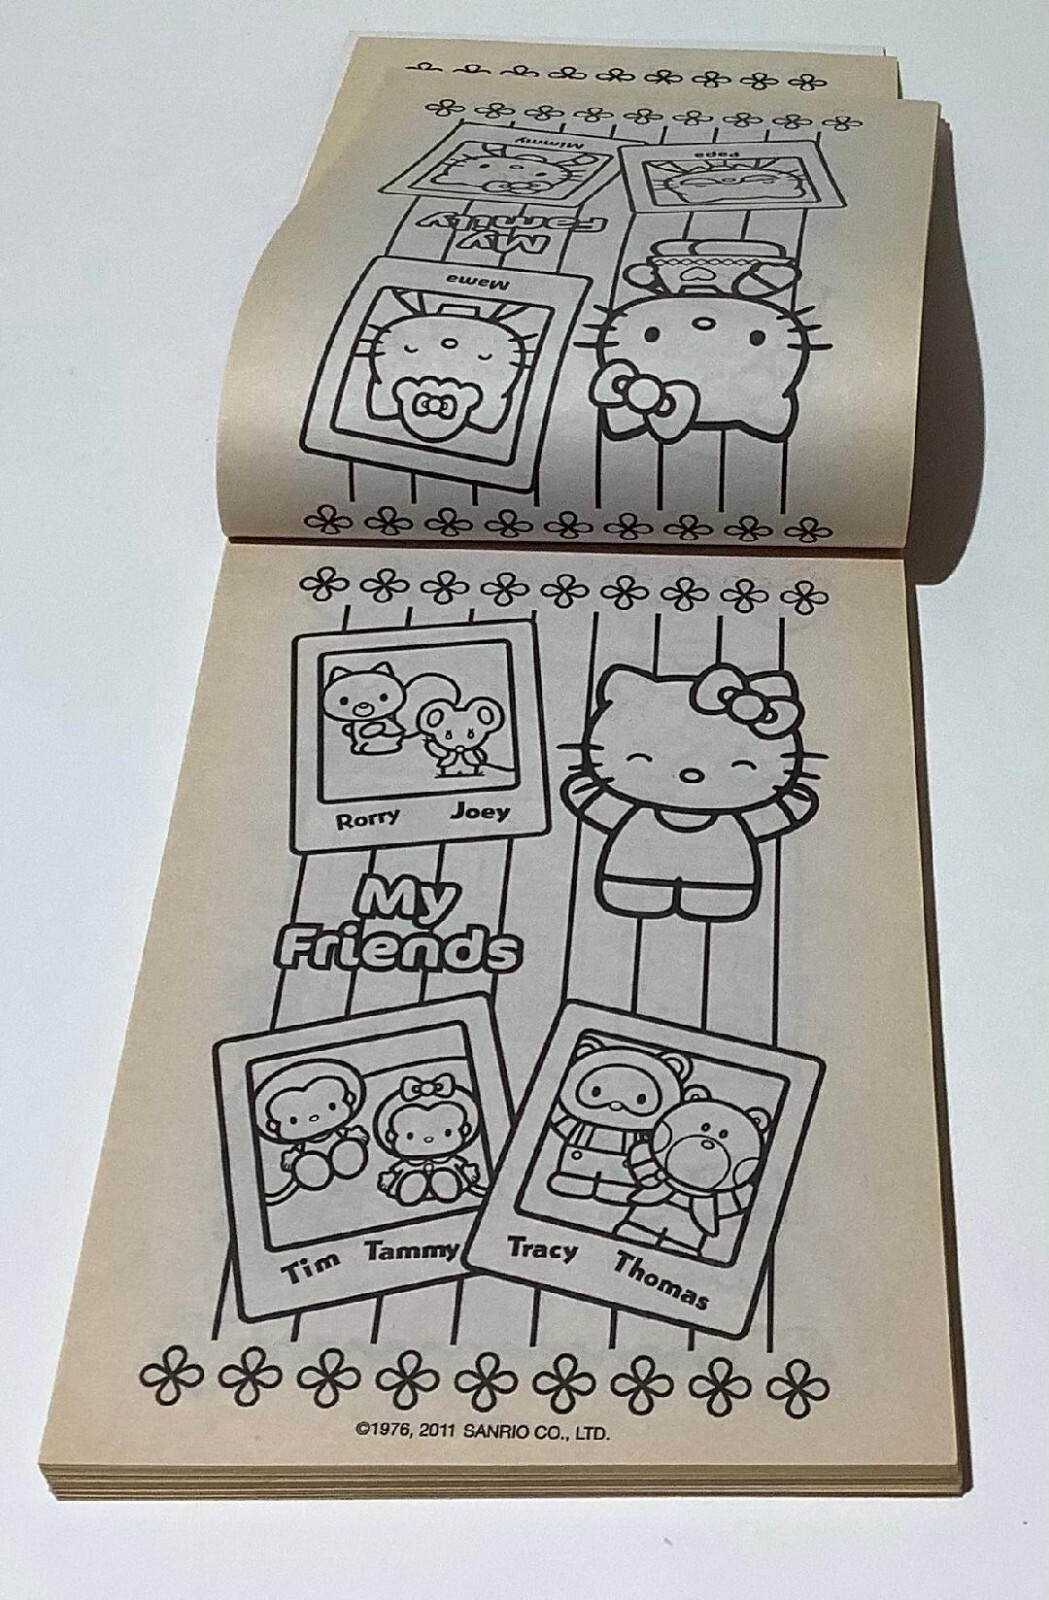 Mimmy
Papa
My
Family
Mama
Rorry Joey
My
Friends
Tim Tammy
Tracy Thomas
©1976, 2011 SANRIO CO., LTD.